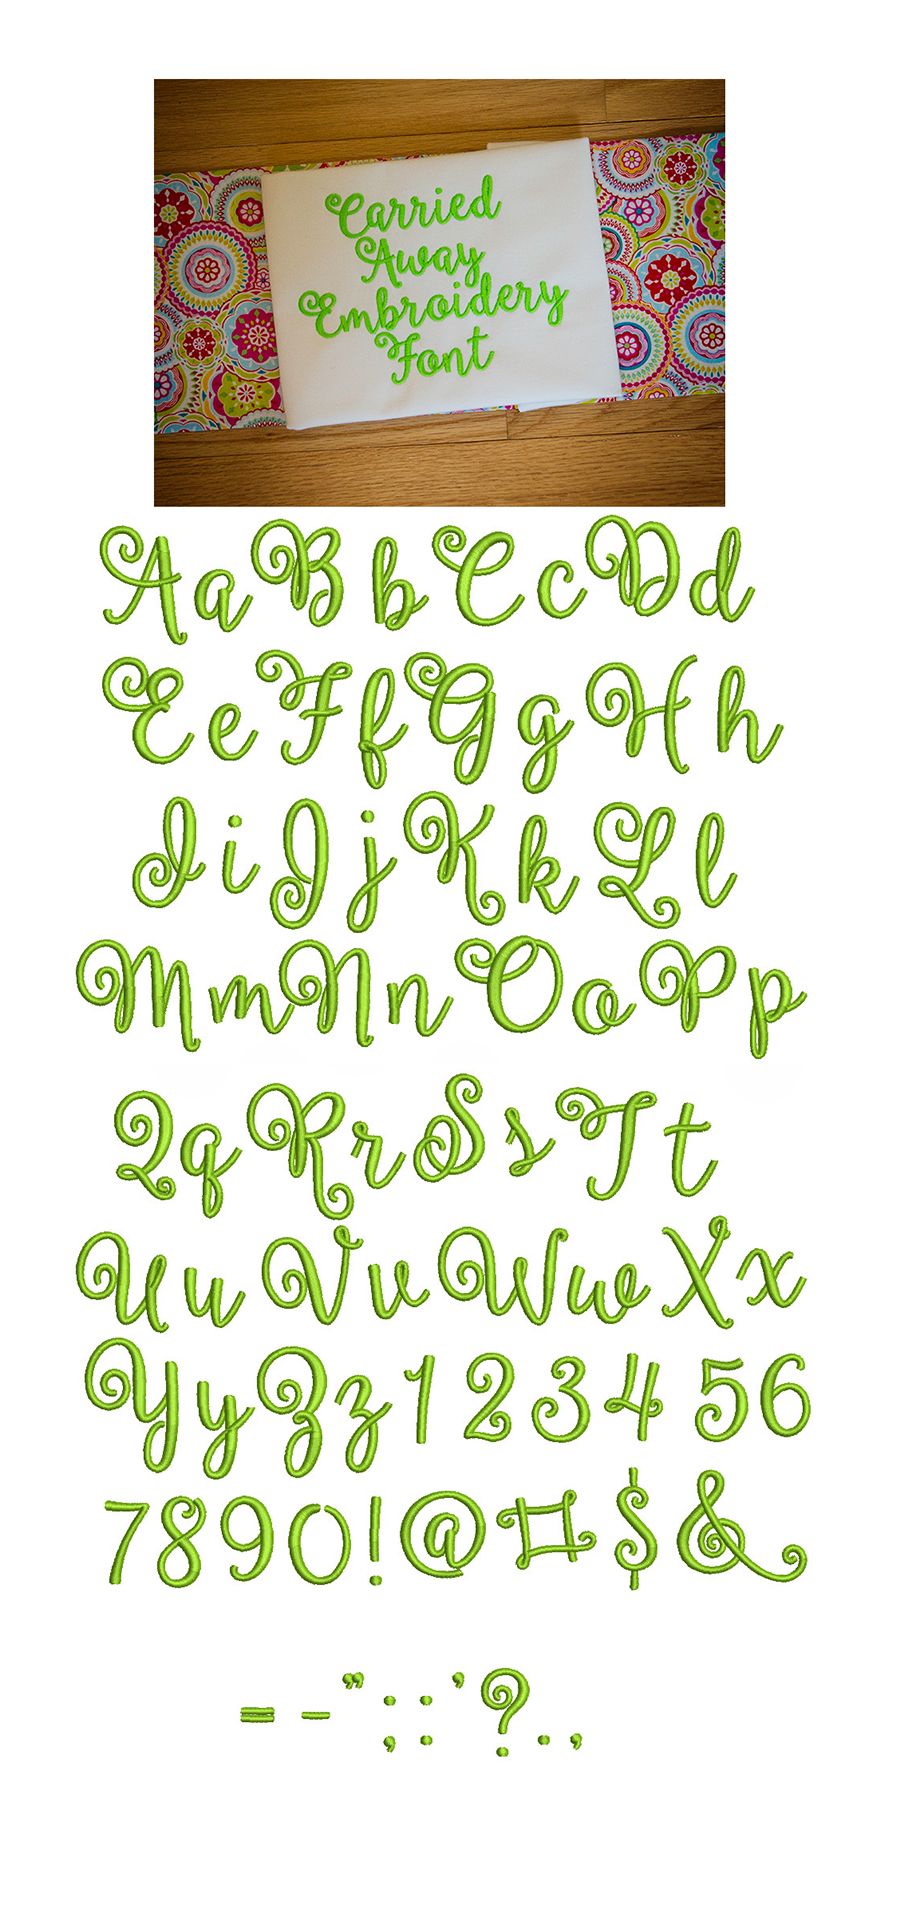 Carried
Away
Embroidery
Font
Aa Bb Cc Dd
Ee Ff Gg Hh
Ii Jj Kk Ll
Mm Nn Oo Pp
Qq Rr Ss Tt
Uu Vv Ww Xx
Yy Zz 1 2 3 4 5 6
7 8 9 0 ! @ # $ &
= - " ; : ' ? . ,